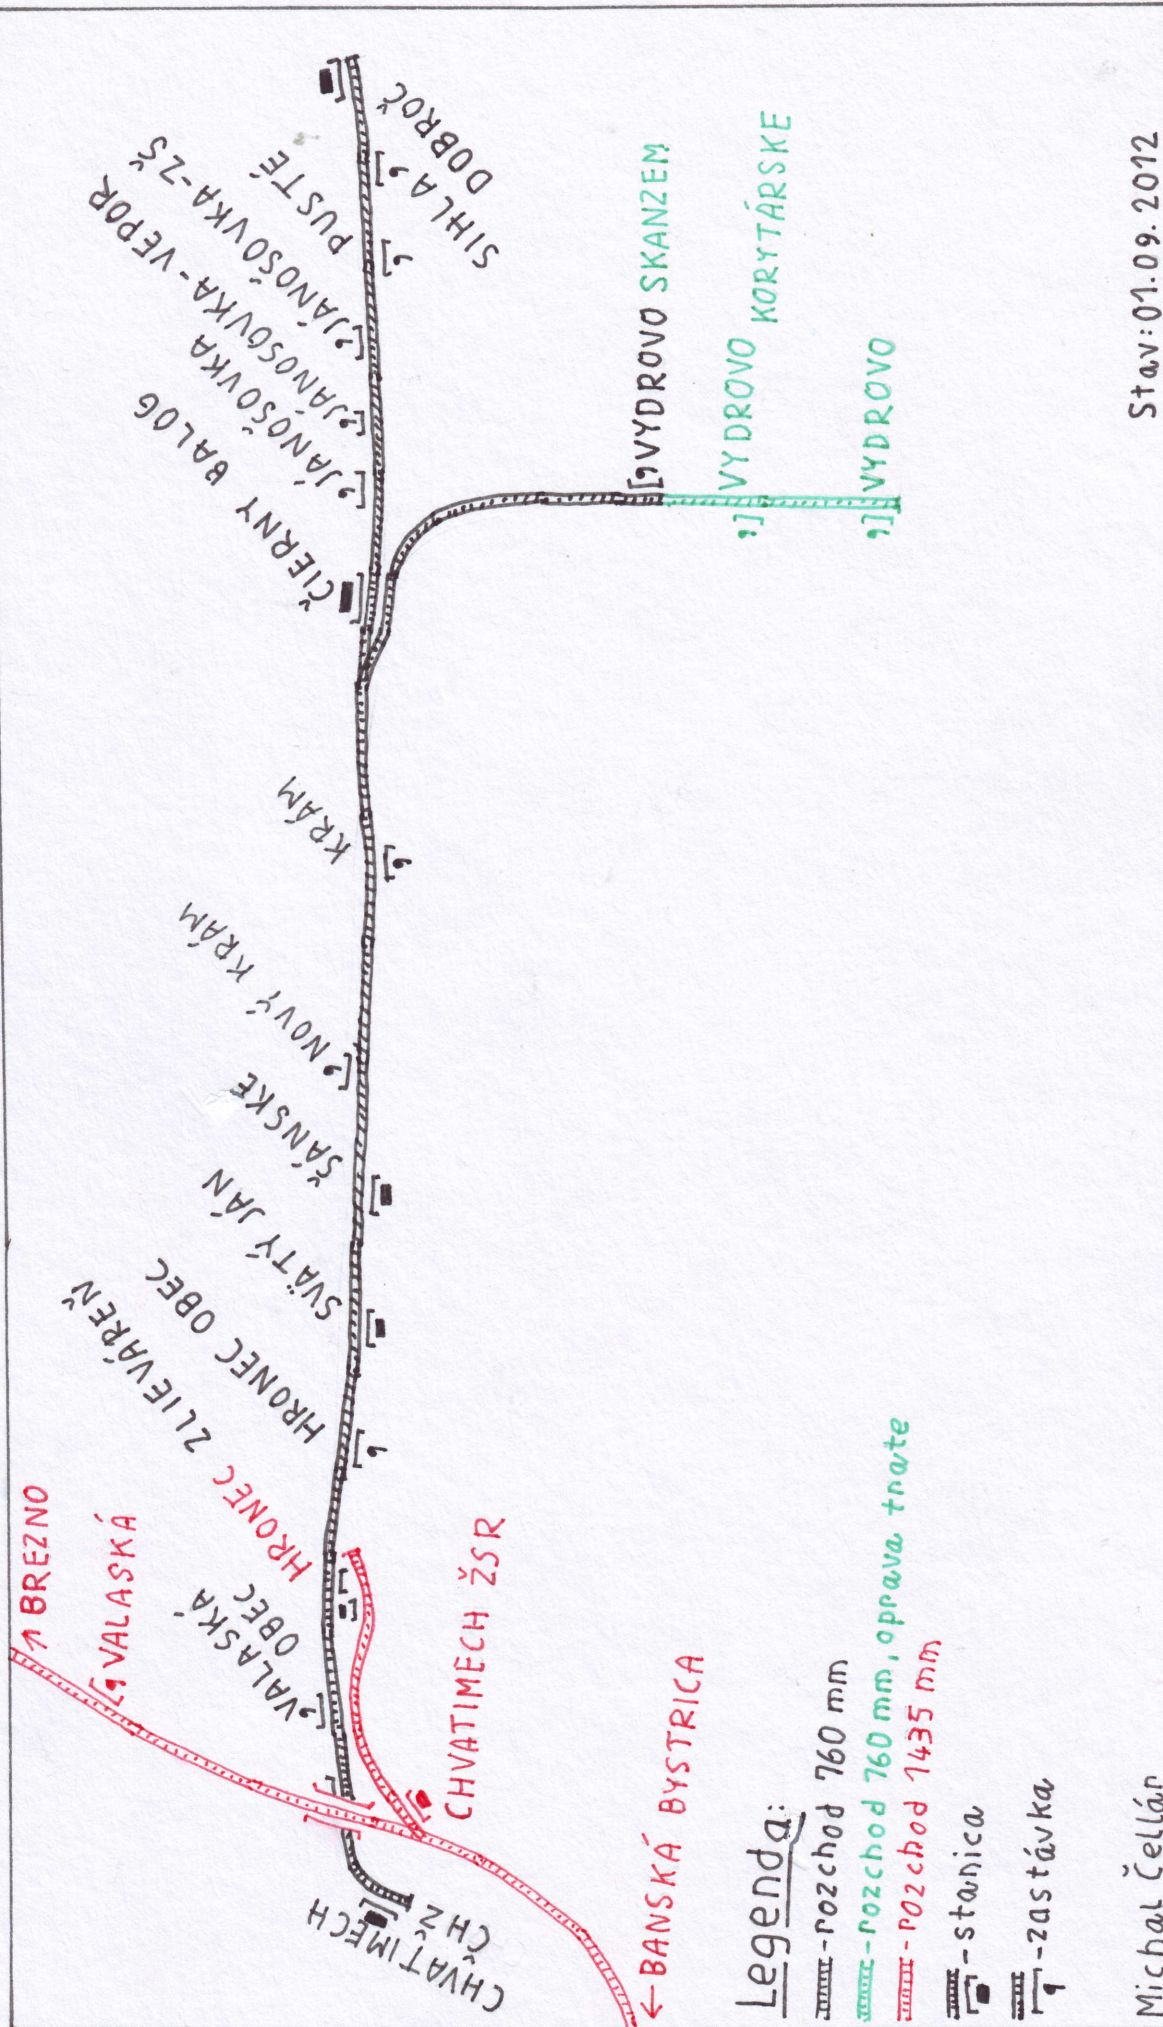 ↗ BREZNO
VALASKÁ
CHVATIMECH
ČHŽ
VALASKÁ
OBEC
HRONEC ZLIEVÁREŇ
HRONEC OBEC
SVÄTÝ JÁN
ŠÁNSKE
NOVÝ KRÁM
KRÁM
ČIERNY BALOG
JÁNOŠOVKA
JÁNOŠOVKA-VEPOR
JÁNOŠOVKA-ZŠ
PUSTÉ
SIHLA
DOBROČ
VYDROVO SKANZEM
VYDROVO
KORYTÁRSKE
VYDROVO
CHVATIMECH ŽSR
← BANSKÁ BYSTRICA
Legenda:
-rozchod 760 mm
-rozchod 760 mm, oprava trate
-rozchod 1435 mm
-stanica
-zastávka
Michal Čellár
Stav:01.09.2012